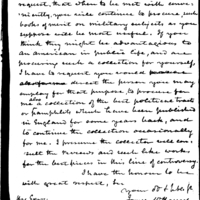 request, that when to be met with conve-
niently, you will continue to procure such
books of merit on military subjects as you
suppose will be most useful. If you
think they might be advantageous to
an American in public life, and are
procuring such a collection for yourself,
I have to request you would
direct the person you may
employ for that purpose, to procure for
me also a collection of the best political tracts
or pamphlets which have been published
in England for some years back, and
to continue the collection occasionally
for me. I presume the collector will con-
sult the Reviews and such like works
for the best pieces in this line of controversy.
I have the honour to be
with great respect, Sir,
Your Obt